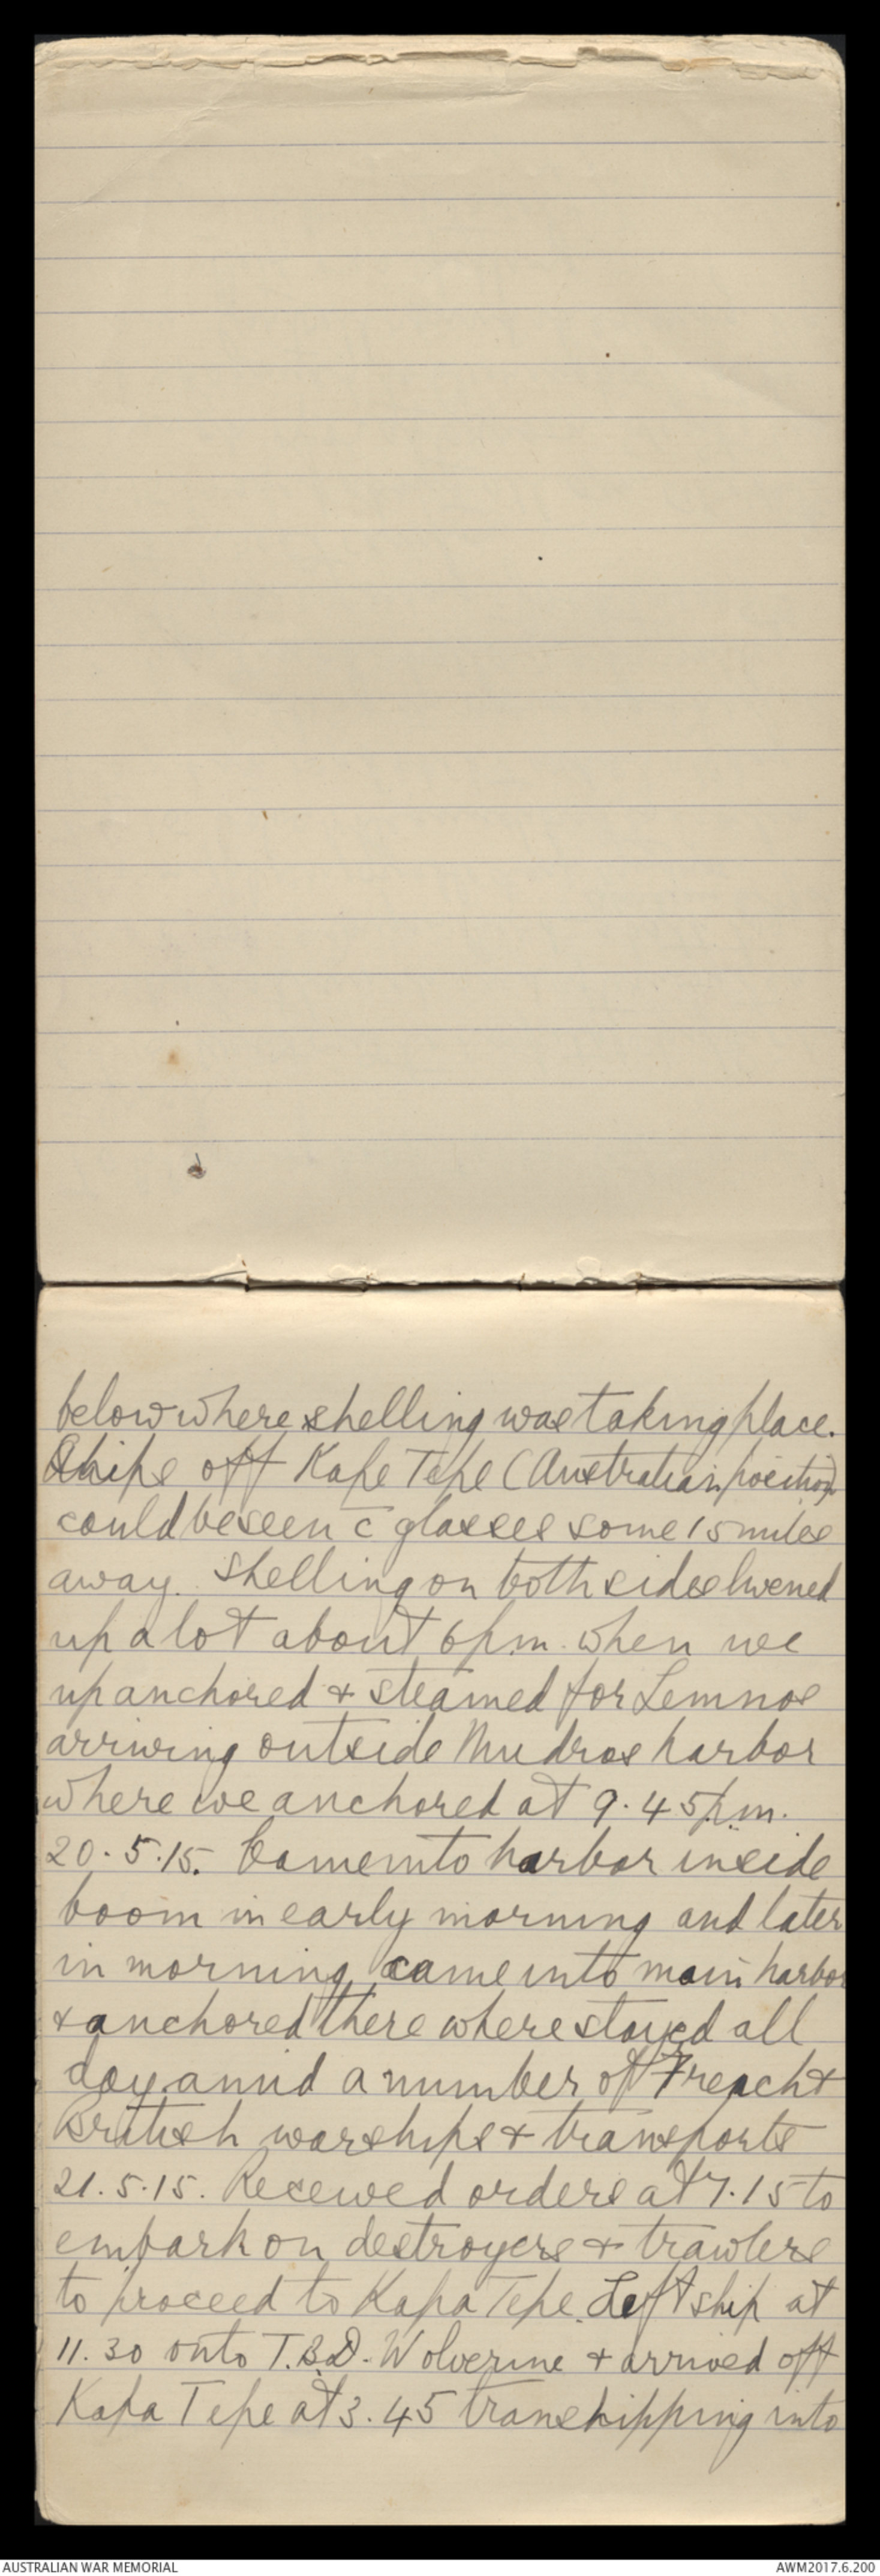 below where shelling was taking place.
Ships off Kape Tepe (Australian position)
could be seen c̄ glasses some 15 miles
away. Shelling on both sides livened
up a lot about 6 p.m. when we
up anchored & steamed for Lemnos
arriving outside Mudros harbor
where we anchored at 9.45 p.m.
20.5.15. Came into harbor inside
boom in early morning and later
in morning came into main harbor
& anchored there where stayed all
day amid a number of French &
British warships & transports
21.5.15. Received orders at 7.15 to
embark on destroyers & trawlers
to proceed to Kapa Tepe. Left ship at
11.30 onto T.B.D. Wolverine & arrived off
Kapa Tepe at 3.45 transhipping into
AUSTRALIAN WAR MEMORIAL
AWM2017.6.200